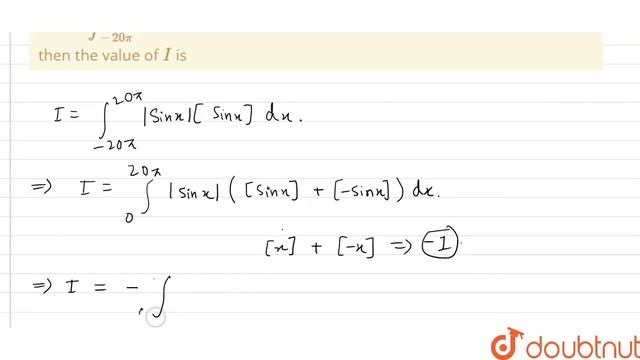 ∫ - 20π
then the value of I is
I = ∫_{-20π}^{20π} |Sinx| [ Sinx] dx.
=> I = ∫_{0}^{20π} |sinx| ( [sinx] + [-sinx] ) dx.
[x] + [-x] => -1.
=> I = - ∫
doubtnut